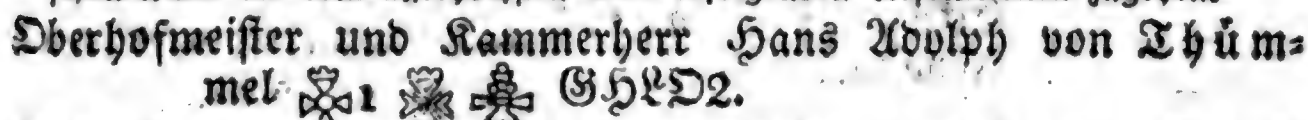 Oberhofmeister und Kammerherr Hans Adolph von Thüm=
mel 1 GHLO2.